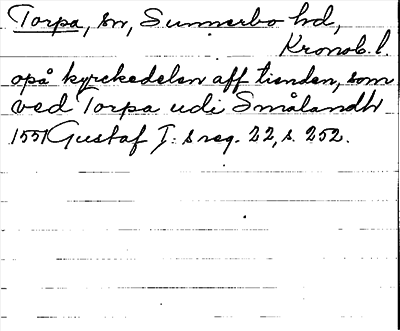 Torpa, sn, Sunnerbo hd,
Kronob. l.
opå kyrckedelen aff tienden, som
ved Torpa udi Smålandh
1551 Gustaf I:s reg. 22, s. 252.